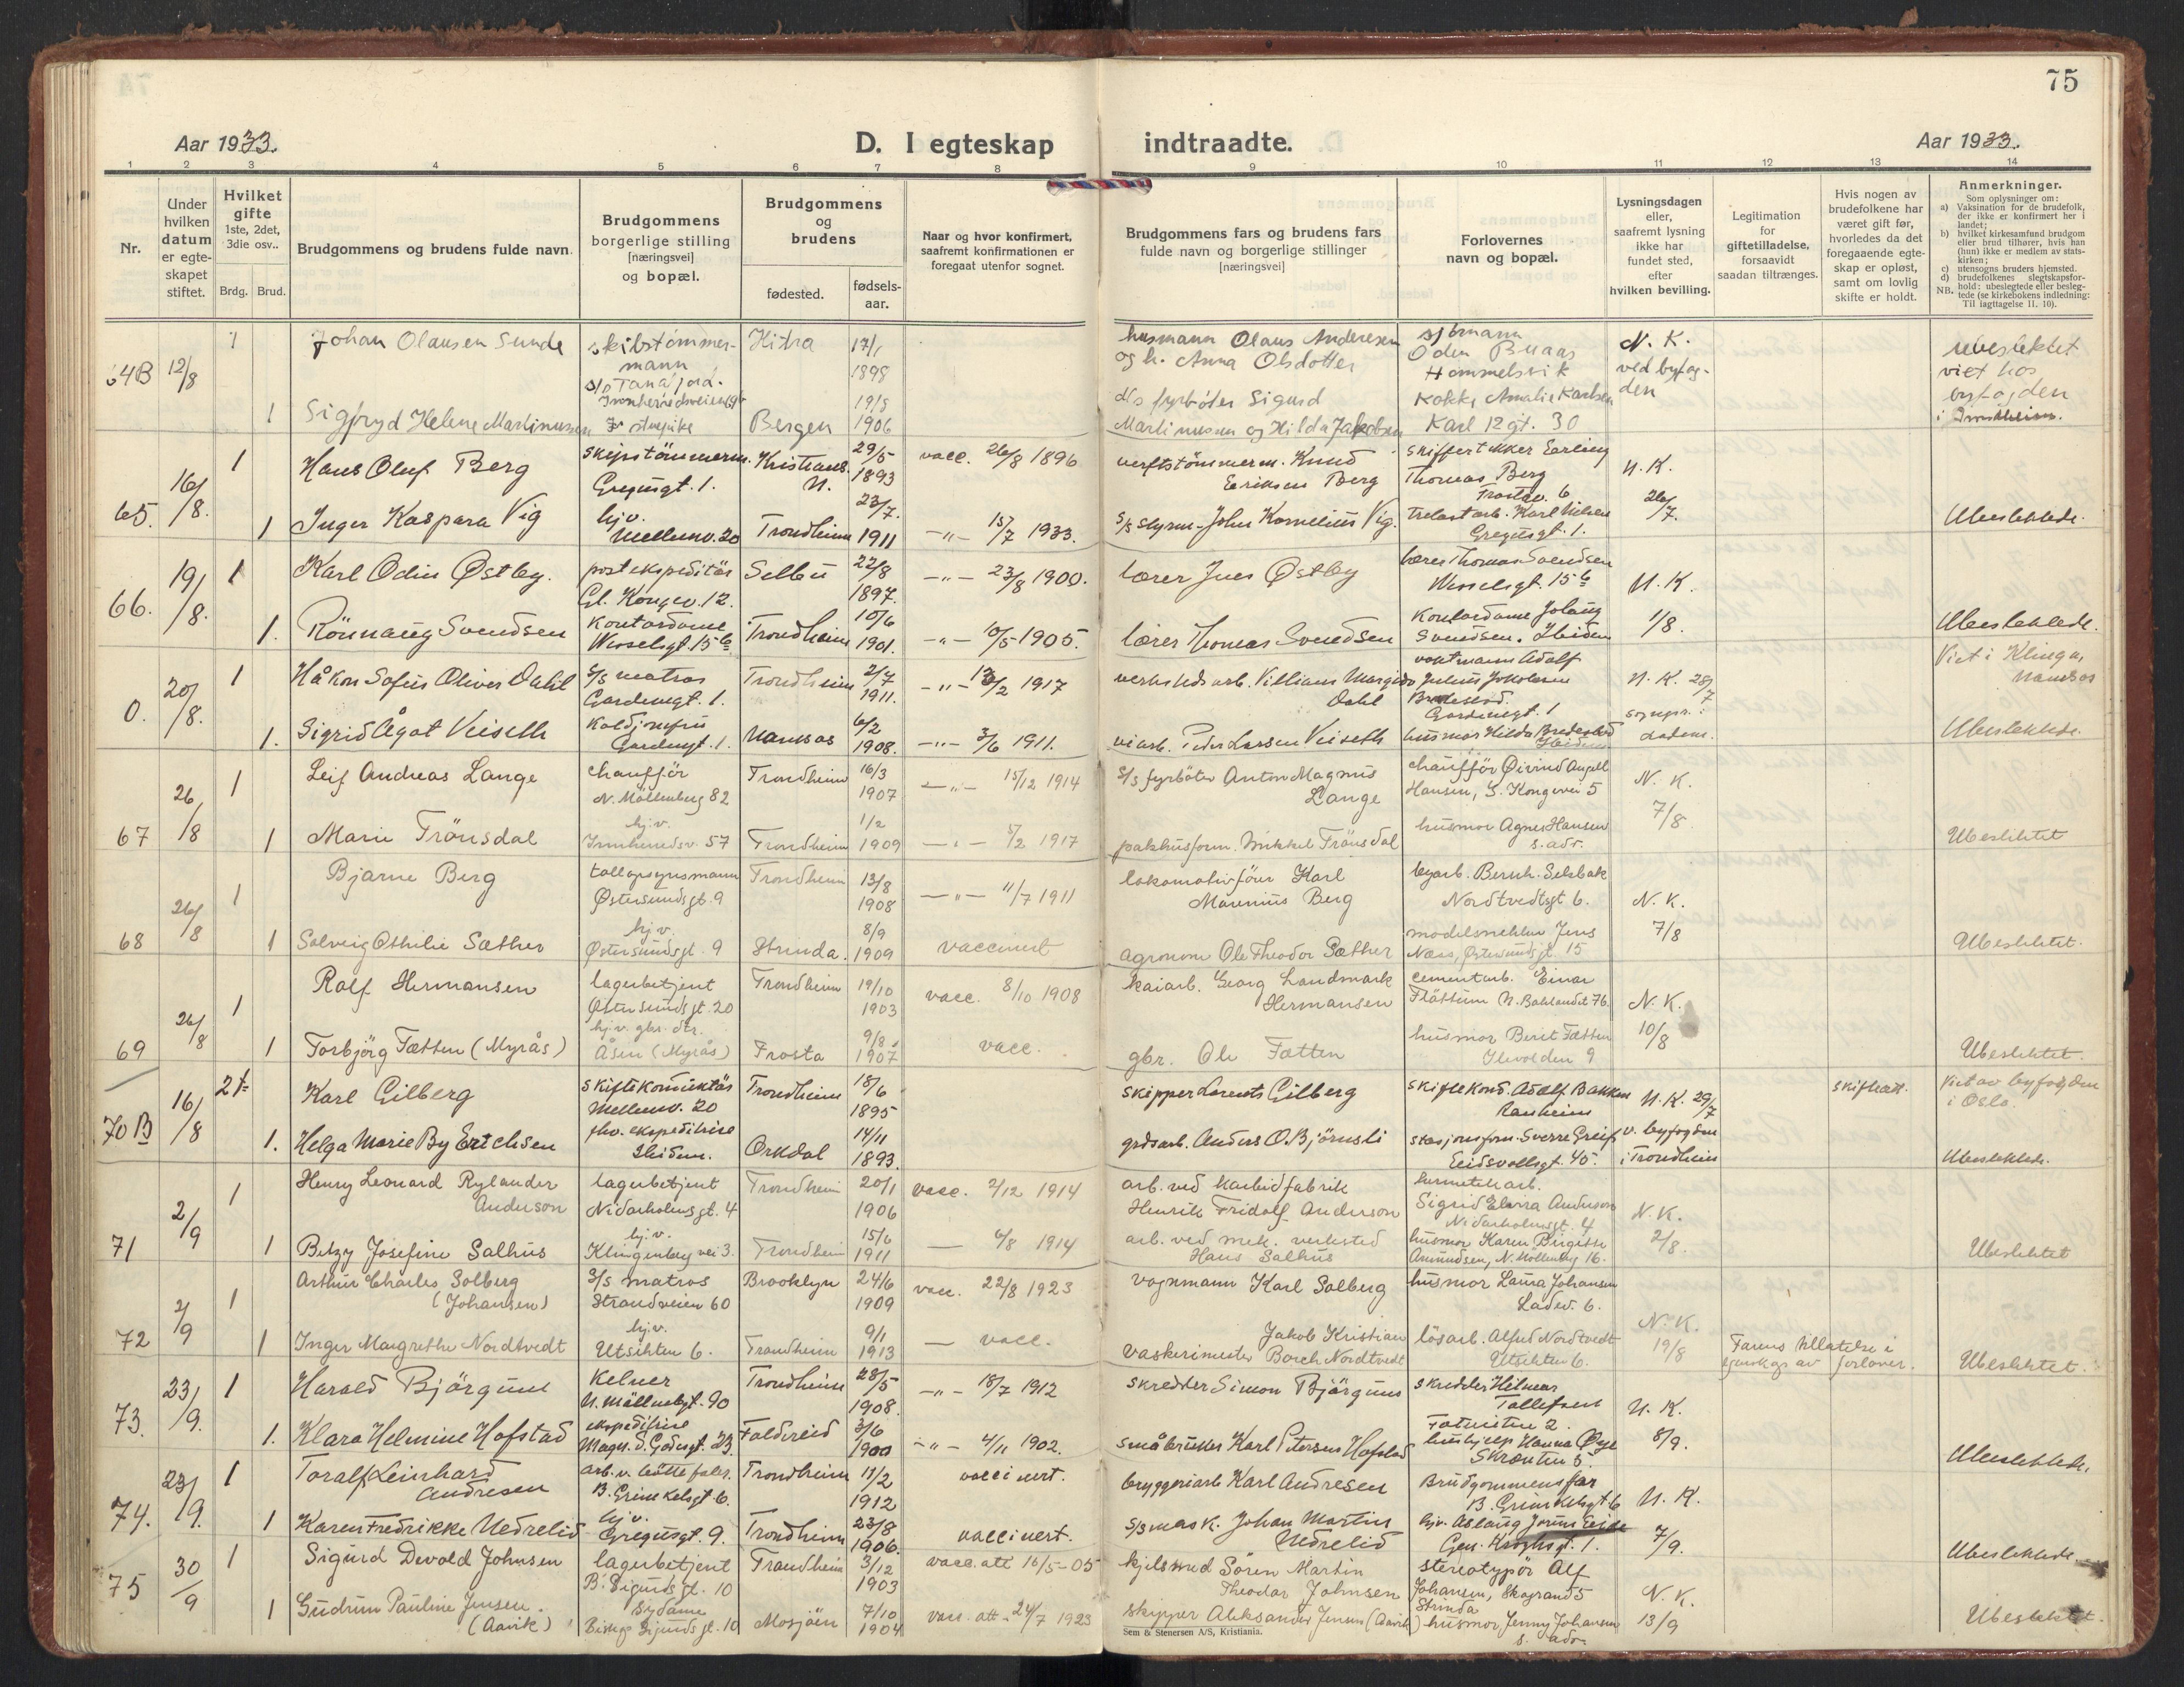 75
Aar 1933.
D. I egteskap indtraadte.
Aar 1933.
1 2 3 4 5 6 7 8 9 10 11 12 13 14
Nr.
Under hvilken datum er egte-skapet stiftet.
Hvilket gifte 1ste, 2det, 3die osv..
Brdg. Brud.
Brudgommens og brudens fulde navn.
Brudgommens borgerlige stilling [næringsvei] og bopæl.
Brudgommens og brudens
fødested. fødsels-aar.
Naar og hvor konfirmert, saafremt konfirmationen er foregaat utenfor sognet.
Brudgommens fars og brudens fars fulde navn og borgerlige stillinger [næringsvei]
Forlovernes navn og bopæl.
Lysningsdagen eller, saafremt lysning ikke har fundet sted, efter hvilken bevilling.
Legitimation for giftetilladelse, forsaavidt saadan tiltrænges.
Hvis nogen av brudefolkene har været gift før, hvorledes da det foregaaende egte-skap er opløst, samt om lovlig skifte er holdt.
Anmerkninger.
Som oplysninger om:
a) Vaksination for de brudefolk, der ikke er konfirmert her i landet;
b) hvilket kirkesamfund brudgom eller brud tilhører, hvis han (hun) ikke er medlem av stats-kirken;
c) utensogns bruders hjemsted.
d) brudefolkenes slegtskapsfor-hold: ubeslegtede eller besleg-tede (se kirkebokens indledning: NB. Til iagttagelse II. 10).
64B 12/8 1 Johan Olausen Sunde skibstømmer-mann Hitra 17/1 1898 husmann Olaus Andersen og h. Anna Olsdotter sjømann Oden Buaas Hommelsvik N. K. ved byfog-den ubeslektet viet hos byfogden i Trondheim.
1 Sigfryd Helene Martinussen Bergen 19/8 1906 d/s fyrbøter Sigurd Martinussen og Hilda Jakobsen Kokke Amalie Karlsen Karl 12 gt. 30
65. 16/8. 1 Hans Oluf Berg skipstömmerm. Gregusgt. 1. Kristians. N. 29/5 1893 vacc. 26/8 1896 verftstömmerm. Knud Eriksen Berg skiffertekker Erling Thomas Berg Frostav. 6 N. K. 26/7.
1 Inger Kaspara Vig hjv. Mellemv. 20 Trondheim 23/7. 1911 -"- 15/7 1933. s/s styrm. John Kornelius Vig. trelastarb. Karl Nilsen Gregusgt. 1. Ubeslektede.
66. 19/8. 1 Karl Odin Østby. postekspeditör Gl. Kongev. 12. Selbu 22/8 1897. -"- 23/8 1900. lærer Jens Østby lærer Thomas Svendsen Wesselsgt. 15 b N. K.
1. Rönnaug Svendsen Kontordame Wesselsgt. 15 b Trondheim 10/6 1901. -"- 10/5 1905. lærer Thomas Svendsen Kontordame Jolaug Svendsen. Ibidem 1/8. Ubeslektede.
0. 20/8. 1 Håkon Sofus Oliver Dahl s/s matros Gardemgt. 1. Trondheim 2/7 1911. -"- 1917 verkstedsarb. Villiams Dahl vaktmann Adolf Julius Jakobsen N. K. 28/7 Viet i Klinga, Namsos
1. Sigrid Ågot Veiseth Koldjomfru Gardemgt. 1. Namsos 6/2 1908. -"- 3/6 1911. viarb. Peder Larsen Veiseth husmor Hilda Ibidem Ubeslektede.
67 26/8 1 Leif Andreas Lange chauffør N. Möllenberg 82 Trondheim 16/3 1907 -"- 15/12 1914 s/s fyrböter Anton Magnus Lange chauffør Øivind Angell Hansen, G. Kongevei 5 N. K. 7/8
1 Marie Trönsdal hj.v. Innherredsv. 57 Trondheim 1/2 1909 -"- 5/2 1917 pakhusform. Mikkel Trönsdal husmor Agnes Hansen s. adr. Ubeslektet
68 26/8 1 Bjarne Berg tollopsynsmann Østersundsgt. 9 Trondheim 13/8 1908 -"- 11/7 1911 lokomotivförer Karl Marenius Berg byarb. Bernh. Selbak Nordtvedtsgt 6. N. K. 7/8
1 Solveig Othilie Sæther hj.v. Østersundsgt. 9 Strinda. 8/9 1909 vaccinert agronom Ole Theodor Sæther modelsnekker Jens Næss, Østersundsgt. 15 Ubeslektet.
69 26/8 1 Rolf Hermansen lagerbetjent Østersundsgt. 20 Trondheim 19/10 1903 vacc. 8/10 1908 kaiarb. Georg Landmark Hermansen cementarb. Einar Flåttum N. Baklandet 76. N. K. 10/8
1 Torbjörg Fætten (Myrås) hj.v. gbr. dtr. Åsen (Myrås) Frosta 9/8. 1907 vacc. gbr. Ole Fætten husmor Beret Fætten Ilevolden 9 Ubeslektet.
70 B 16/8 2t Karl Gilberg skiftekonduktør Mellemv. 20 Trondheim 18/6 1895 skipper Lorents Gilberg skiftekond. Adolf Bakken Ranheim N. K. 29/7 v. byfogden i Trondheim skifteatt. Viet av byfogden i Oslo.
1. Helga Marie By Erichsen fhv. ekspeditrise Ibidem. Orkdal 14/11 1893. grdsarb. Anders O. Björnsli stasjonsform. Sverre Greiff Eidsvollsgt. 45. Ubeslektede.
71 2/9 1 Henry Leonard Rylander Anderson lagerbetjent Nidarholmsgt. 4 Trondheim 20/1 1906 vacc. 2/12 1914 arb. ved karbidfabrik Henrik Fridolf Anderson hermetikarb. Sigrid Elvira Anderson Nidarholmsgt. 4 N. K. 2/8.
1 Betzy Josefine Salhus hj.v. Klingenberg vei 3. Trondheim 15/6 1911 — 6/8 1914 arb. ved mek. verksted Hans Salhus husmor Karen Birgitte Amundsen, N. Möllenbg 16. Ubeslektet
72 2/9 1 Arthur Charles Solberg (Johansen) s/s matros Strandveien 60 Brooklyn 24/6 1909 vacc. 22/8 1923 vognmann Karl Solberg husmor Laura Johansen Ladev. 6. N. K. 19/8
1 Inger Margrethe Nordtvedt hj.v. Utsikten 6. Trondheim 9/1 1913 — vacc. vaskerimester Jakob Kristian Borch Nordtvedt lösarb. Alfred Nordtvedt Utsikten 6. Farens tillatelse i av forlover. Ubeslektet.
73. 23/9. 1 Harald Björgum Kelner N. Möllenbgt. 90 Trondheim 28/5 1908. -"- 18/7 1912 skredder Simon Björgum skredder Hilmar Tollefsen N. K. 8/9.
1. Klara Helmine Hofstad ekspeditrise Magn. d. Godesgt. 23. Foldereid 3/6 1900 -"- 4/11 1902. småbruker Karl Petersen Hofstad hushjelp Hanna Øye Skrenten 5. Ubeslektede.
74. 23/9. 1 Toralf Leinhard Andresen arb. v. bøttefabr. B. Grimkelsgt 6. Trondheim 11/2 1912 vaccinert. bryggeriarb Karl Andresen Brudgommens far B. Grimkelsgt. 6 N. K. 7/9.
1 Karen Fredrikke Nedrelid hj.v. Gregusgt. 9. Trondheim 23/8 1906. vaccinert. s/s mask. Johan Martin Nedrelid hjv. Aslaug Gen. Kroghsgt. 1. Ubeslektede.
75 30/9 1 Sigurd Devold Johnsen lagerbetjent B. Sigurds gt. 10 Trondheim 3/12 1903 vacc. att 16/5-05 kjelsmed Sören Martin Theodor Johnsen stereotypör Alf Johansen, Skogrand 5 Strinda N. K. 13/9
1 Gudrun Pauline Jensen. (Aavik) Sydame Biskop Sigurds gt. 10 Mosjöen 7/10 1904 vacc. att. 24/7 1923 skipper Aleksander Jensen (Aavik) husmor Jenny Johansen s. adr. Ubeslektet.
Sem & Stenersen A/S, Kristiania.